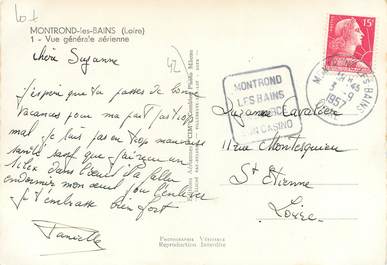 MONTROND-les-BAINS (Loire)
1 - Vue générale aérienne
42
Chère Suzanne
J'espère que tu passes de bonnes
vacances pour ma part pas trop
mal je suis pas en trop mauvaise
santé sauf que j'ai reçu un
silex dans l'œil il a fallu
endormir mon œil pour l'enlever
je t'embrasse bien fort
Danielle
15F
MONTROND
LES BAINS
SON CASINO
3 - 9
1957
Suzanne Cavalier
11 rue Montesquieu
St Etienne
Loire
PHOTOGRAPHIE VÉRITABLE
Reproduction Interdite